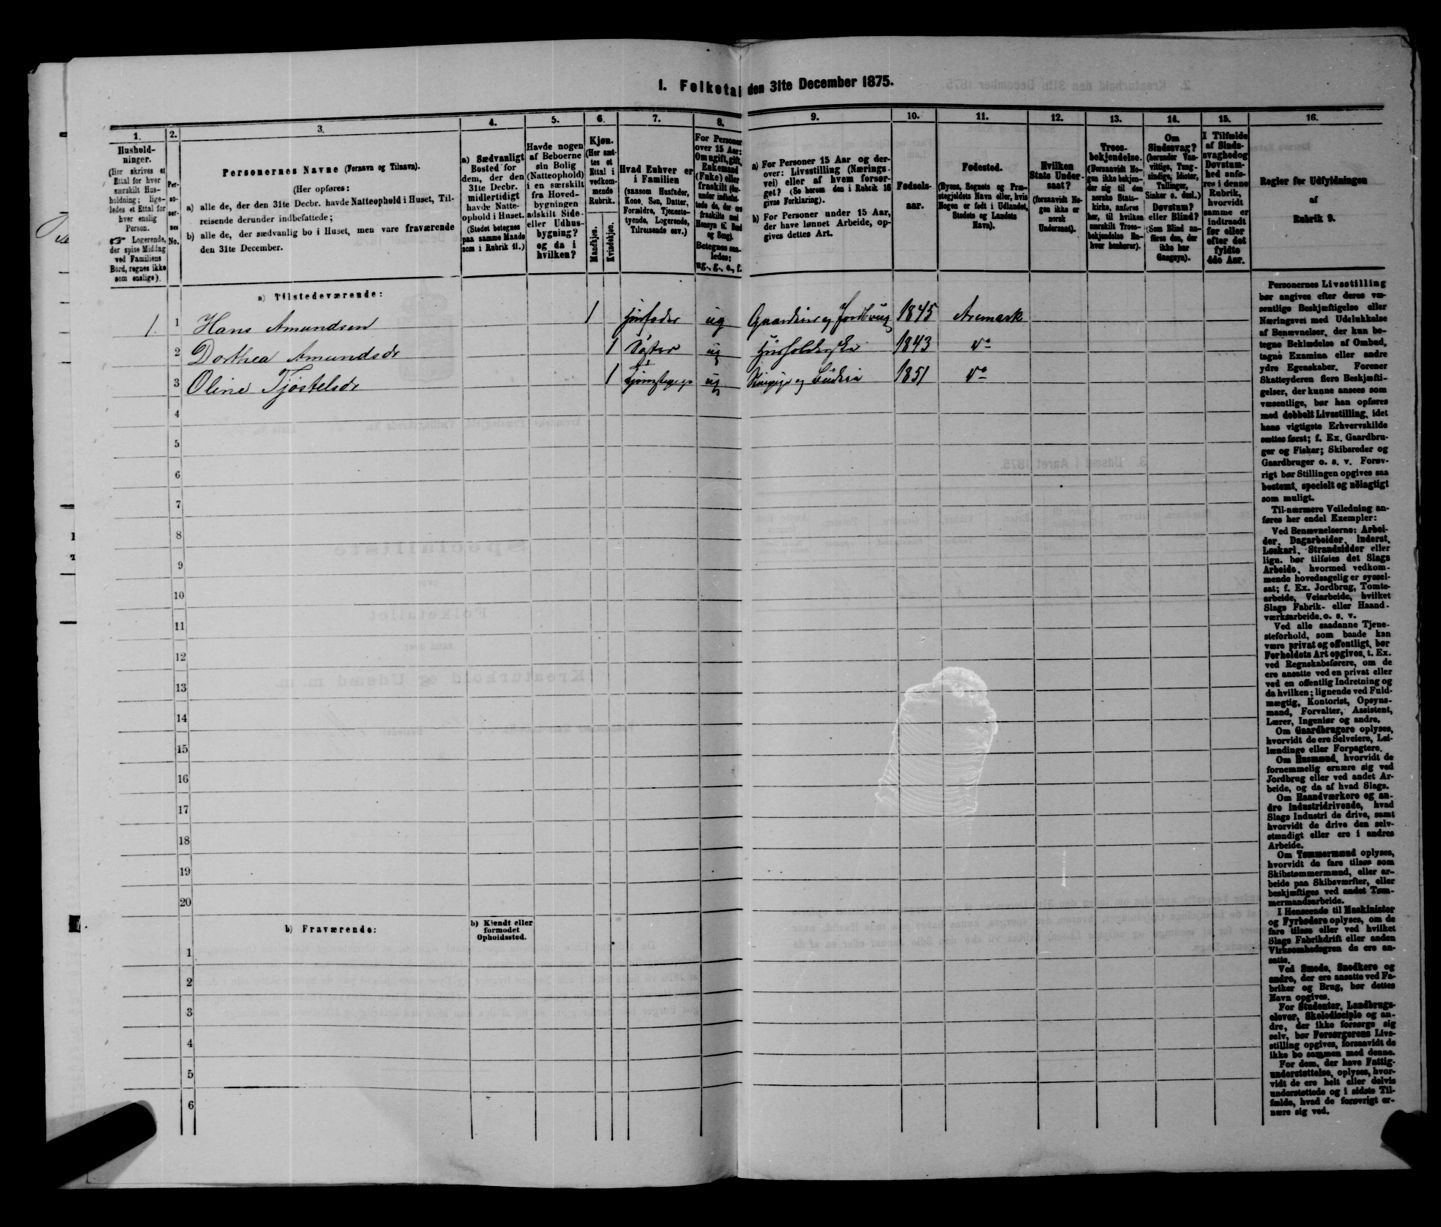 I. Folketal den 31te December 1875.
1.
Husholdninger.
(Her skrives et
Ettal for hver
særskilt Husholdning;
ligeledes et Ettal for
hver enslig
Person.
☞ Logerende,
der spise Middag
ved Familiens
Bord, regnes ikke
som enslige).
2.
Personernes
No.
3.
Personernes Navne (Fornavn og Tilnavn).
(Her opføres:
a) alle de, der den 31te Decbr. havde Natteophold i Huset, Tilreisende derunder indbefattede;
b) alle de, der sædvanlig bo i Huset, men vare fraværende
den 31te December.
4.
a) Sædvanligt
Bosted for
dem, der den
31te Decbr.
midlertidigt
havde Natteophold i Huset.
(Stedet betegnes
paa samme Maade
som i Rubrik 11.)
5.
Havde nogen
af Beboerne
sin Bolig
(Natteophold)
i en særskilt
fra Hovedbygningen
adskilt Side- eller Udhusbygning?
og da i
hvilken?
6.
Kjøn.
(Her anføres et
Ettal i
vedkommende
Rubrik.
Mandkjøn.
Kvindekjøn.
7.
Hvad Enhver er
i Familien
(saasom Husfader,
Kone, Søn, Datter,
Forældre, Tjenestetyende, Logerende,
Tilreisende osv.)
8.
For Personer
over 15 Aar:
Om ugift, gift,
Enkemand
(Enke) eller
fraskilt
Betegnes saaledes:
ug., g., e., f.
9.
a) For Personer 15 Aar og derover: Livsstilling (Næringsvei) eller af hvem forsørget? (Se herom den i Rubrik 16
givne Forklaring).
b) For Personer under 15 Aar,
der have lønnet Arbeide, opgives dettes Art.
10.
Fødselsaar.
11.
Fødested.
(Byens, Sognets og Præstegjeldets Navn, eller, hvis
Nogen er født i Udlandet,
Stedets og Landets
Navn).
12.
Hvilken
Stats Undersaat?
(forsaavidt Nogen ikke er
norsk
Undersaat).
13.
Troesbekjendelse.
(Forsaavidt Nogen ikke bekjender sig til den
norske Statskirke, anføres
her, til hvilken
særskilt Troesbekjendelse Enhver henhører).
14.
Om
Sindssvag?
(herunder Vanvittige, Tungsindige, Idioter,
Tullinger,
Sinker o. desl.)
Døvstum?
eller Blind?
(Som Blind anføres den, der
ikke har
Gangsyn).
15.
I Tilfælde
af Sindssvaghed og
Døvstumhed anføres i denne
Rubrik,
hvorvidt
samme er
indtraadt
før eller
efter det
fyldte
4de Aar.
16.
Regler for Udfyldningen
af
Rubrik 9.
a) Tilstedeværende:
1. 1 Hans Amundsen 1 Husfader ug Gaardeier og Jordbrug 1845 Aremark
2 Dorthea Amundsdr 1 Søster ug Husholderske 1843 do
3 Oline Tjøstelsdr 1 ug 1851 do
4
5
6
7
8
9
10
11
12
13
14
15
16
17
18
19
20
b) Fraværende:
b) Kjendt eller
formodet
Opholdssted.
1
2
3
4
5
6
Personernes Livsstilling
bør angives efter deres væsentlige Beskjæftigelse eller
Næringsvei med Udelukkelse
af Benævnelser, der kun betegne Bekledning af Ombud,
tagne Examina eller andre
ydre Egenskaber. Forener
Skatteyderen flere Beskjæftigelser, der kunne ansees som
væsentlige, bør han opføres
med dobbelt Livsstilling, idet
hans vigtigste Erhvervskilde
sættes først; f. Ex. Gaardbruger og Fisker; Skibsreder og
Gaardbruger o. s. v. Forøvrigt bør Stillingen opgives saa
bestemt, specielt og nøiagtigt
som muligt.
Til nærmere Veiledning anføres her endel Exempler:
Ved Benævnelserne: Arbeider, Dagarbeider, Inderst,
Løskarl, Strandsidder eller
lign. bør tilføies det Slags
Arbeide, hvormed vedkommende hovedsagelig er sysselsat; f. Ex. Jordbrug, Tomtearbeide, Veiarbeide, hvilket
Slags Fabrik- eller Haandværksarbeide, o. s. v.
Ved alle saadanne Tjenesteforhold, som baade kan
være privat og offentligt, bør
Forholdets Art opgives, t. Ex.
ved Regnskabsførere, om de
ere ansatte ved en privat eller
ved en offentlig Indretning og
da hvilken; lignende ved Fuldmægtig, Kontorist, Opsynsmand, Forvalter, Assistent,
Lærer, Ingeniør og andre.
Om Gaardbrugere oplyses,
hvorvidt de ere Selveiere, Leilændinge eller Forpagtere.
Om Husmænd, hvorvidt de
fornemmelig ernære sig ved
Jordbrug eller ved andet Arbeide, og da af hvad Slags.
Om Haandværkere og andre Industridrivende, hvad
Slags Industri de drive, samt
hvorvidt de drive den selvstændigt eller ere i andres
Arbeide.
Om Tømmermænd oplyses,
hvorvidt de fare tilsøs som
Skibstømmermænd, eller arbeide paa Skibsværfter, eller
beskjæftiges ved andet Tømmermandsarbeide.
I Henseende til Maskinister
og Fyrbødere oplyses, om de
fare tilsøs eller ved hvilket
Slags Fabrikdrift eller anden
Virksomhedsgren de ere ansatte.
Ved Smede, Snedkere og
andre, der ere ansatte ved Fabriker og Brug, bør dettes
Navn opgives.
For Studenter, Landbrugselever, Skoledisciple og andre, der ikke forsørge sig
selv, bør Forsørgerens Livsstilling opgives, forsaavidt de
ikke bo sammen med denne.
For dem, der have Fattigunderstøttelse, oplyses, hvorvidt de ere helt eller delvis
understøttede og i sidste Tilfælde, hvad de forøvrigt ernære sig ved.